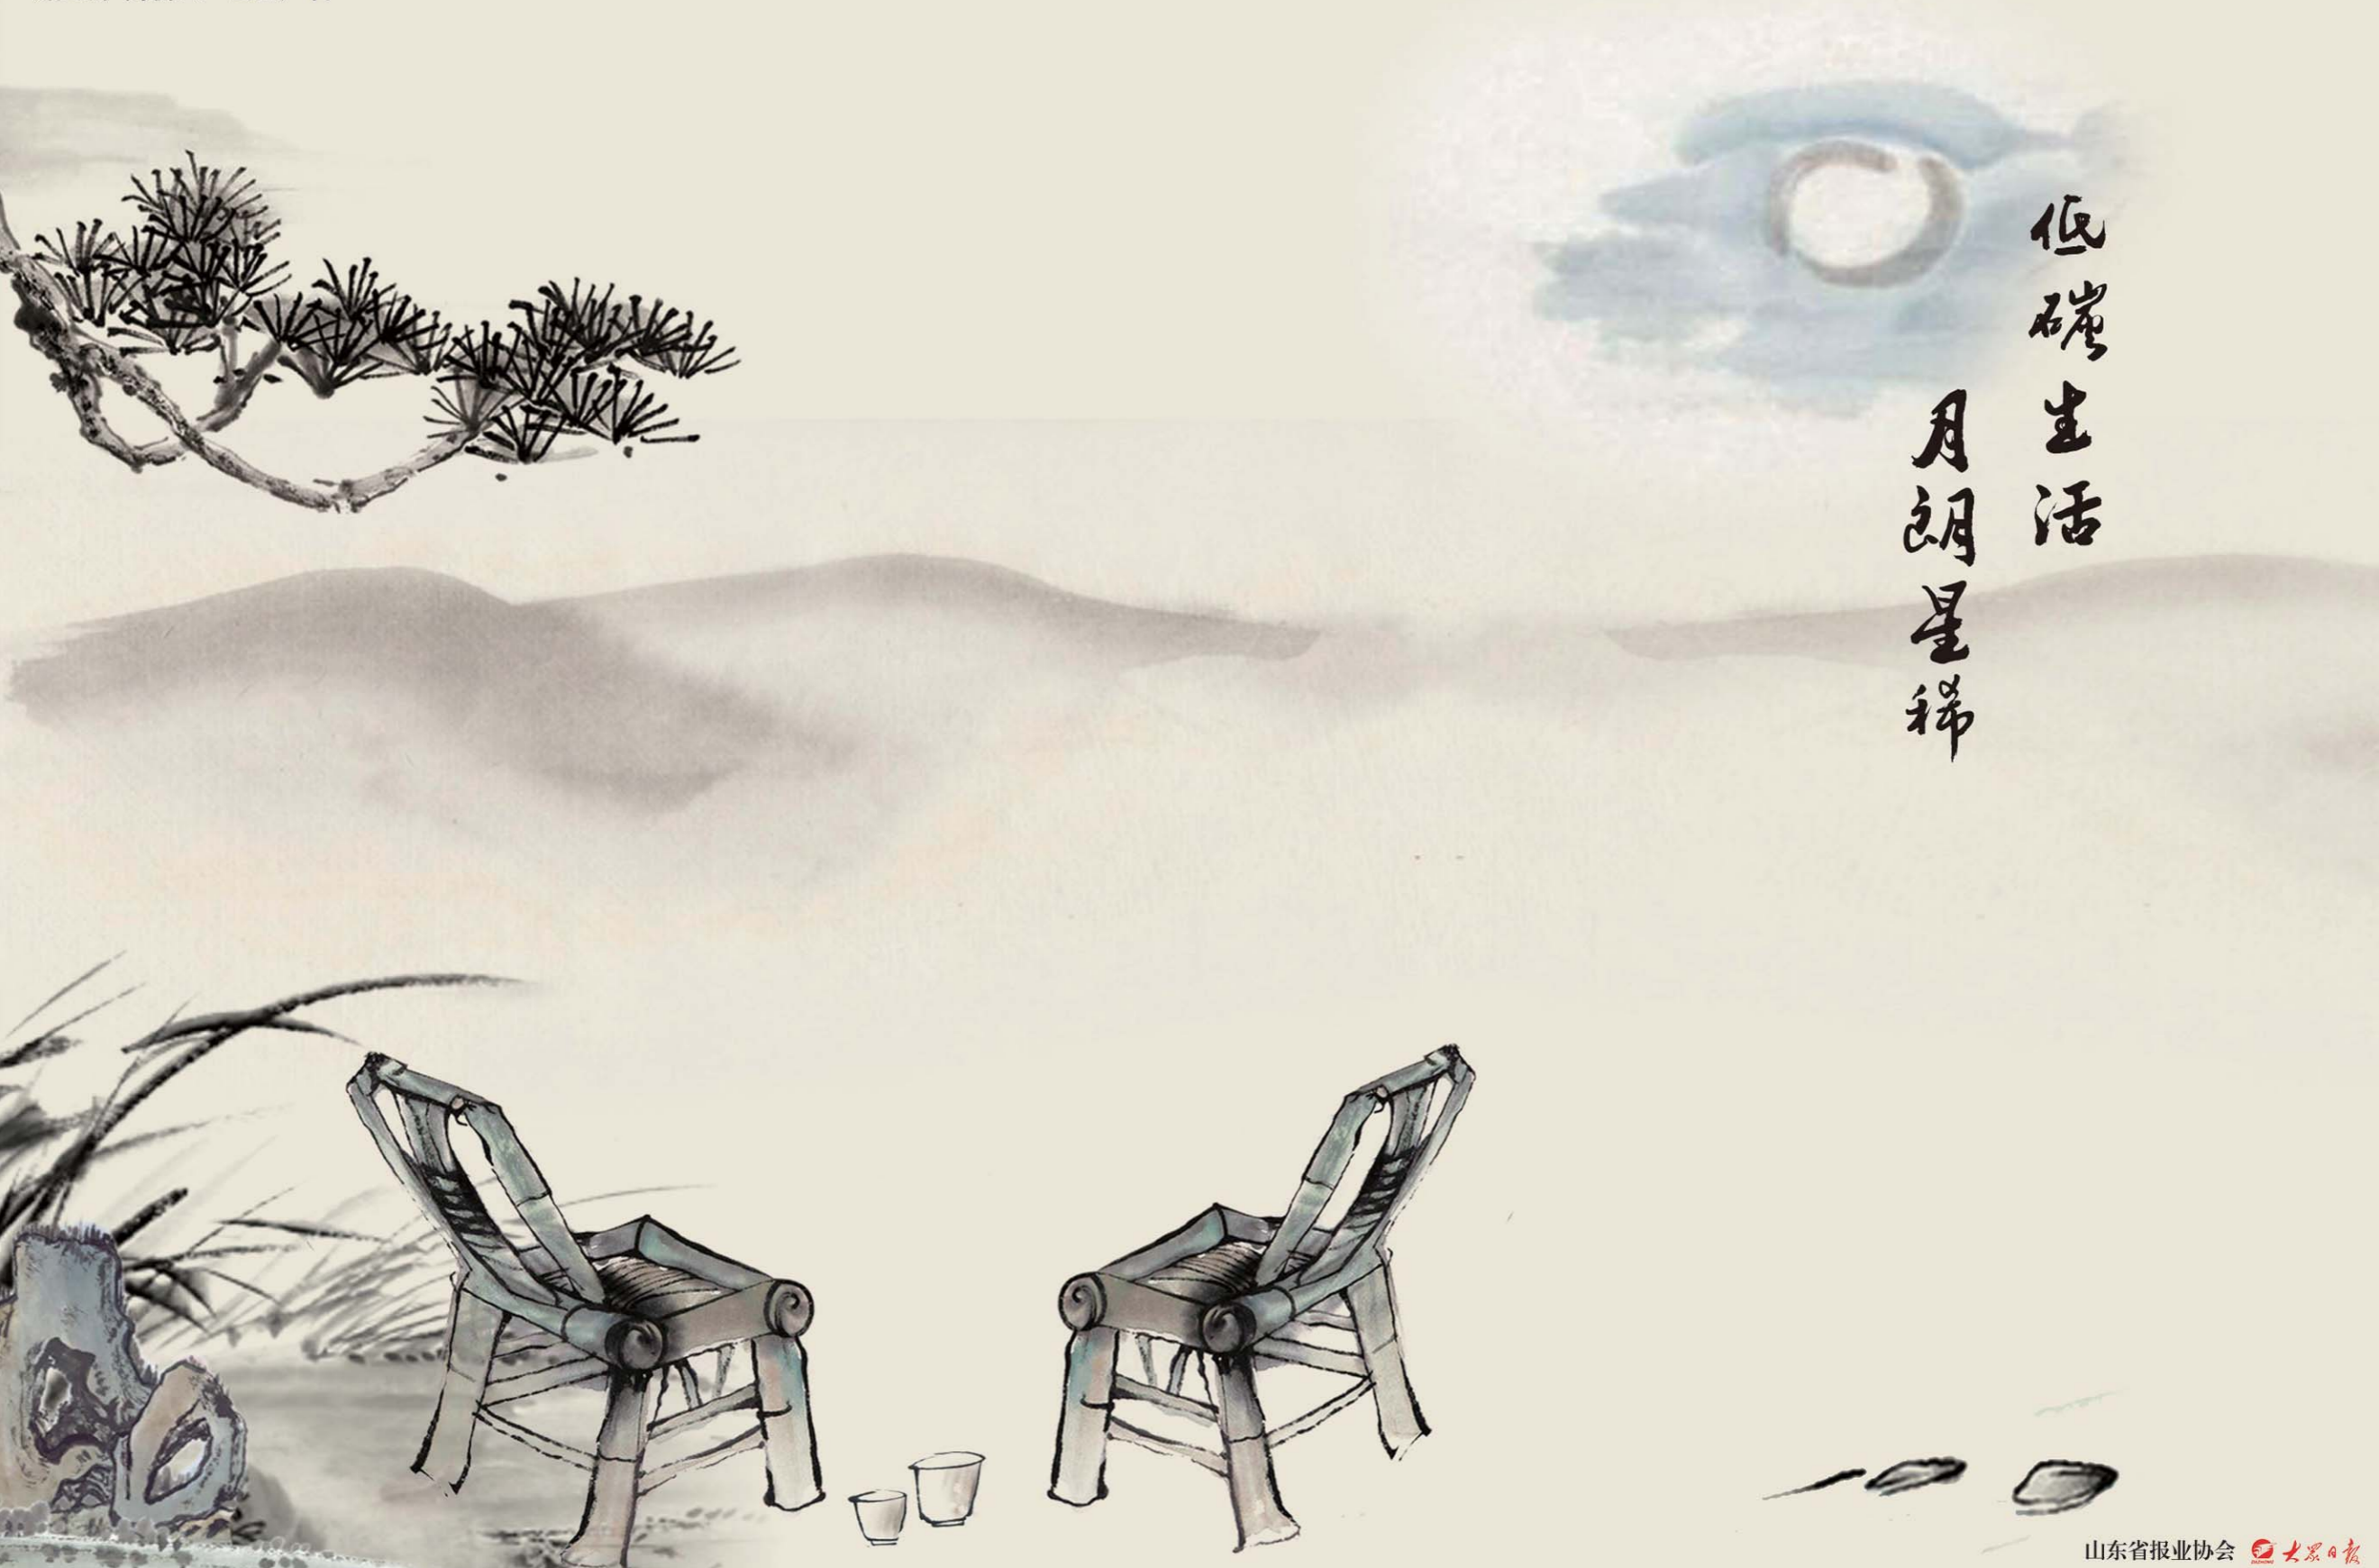 低碳生活
月朗星稀
山东省报业协会 大众日报